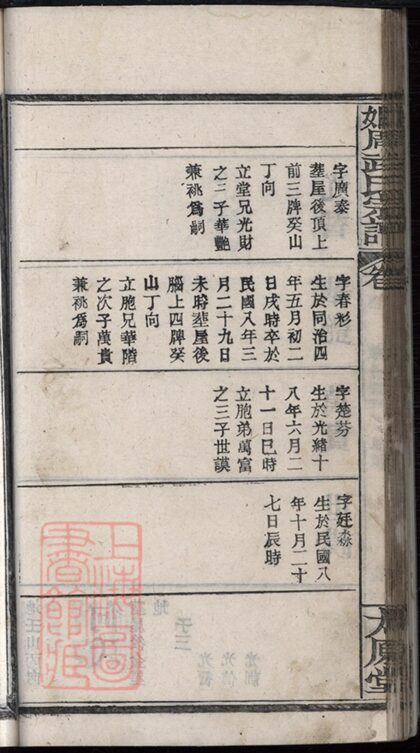 字廣泰
塟屋後頂上
前三牌癸山
丁向
立堂兄光財
之三子華艷
兼祧為嗣
字春彩
生於同治四
年五月初二
日戌時卒於
民國八年三
月二十九日
未時塟屋後
腦上四牌癸
山丁向
立胞兄華陸
之次子萬貴
兼祧為嗣
字楚芬
生於光緒十
八年六月二
十一日巳時
立胞弟萬富
之三子世謨
字廷森
生於民國八
年十月二寸
七日辰時
氏宗譜
卷
太原堂
上海圖
書館藏